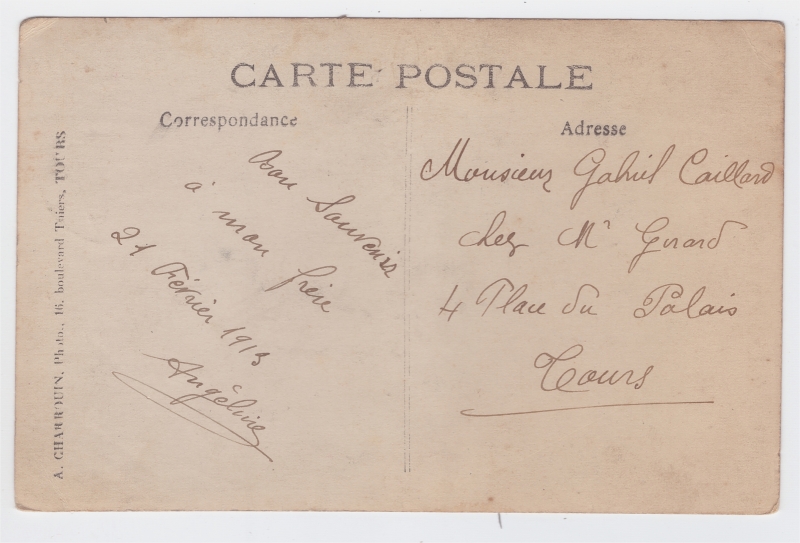 CARTE POSTALE
Correspondance
Bon Souvenir
à mon frère
21 Février 1913
Angéline
Adresse
Monsieur Gabriel Caillard
chez Mr Girard
4 Place du Palais
Tours
A. CHARROUIN, Photo., 16, boulevard Thiers, TOURS